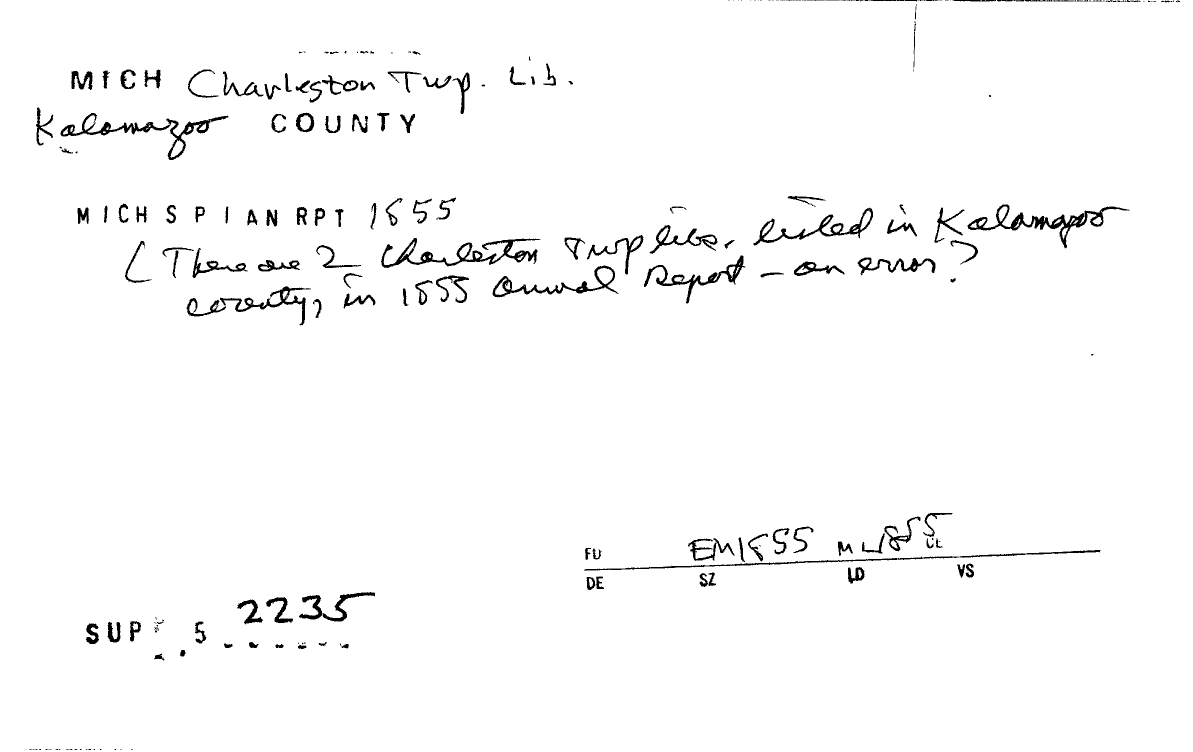 MICH Charleston Twp. Lib.
Kalamazoo COUNTY
MICH S P I AN RPT 1855
(There are 2 Charleston Twp libs. listed in Kalamazoo
county, in 1855 Annual Report - an error?
FU EM1855 ML1855 UL
DE SZ LD VS
SUP .5 2235